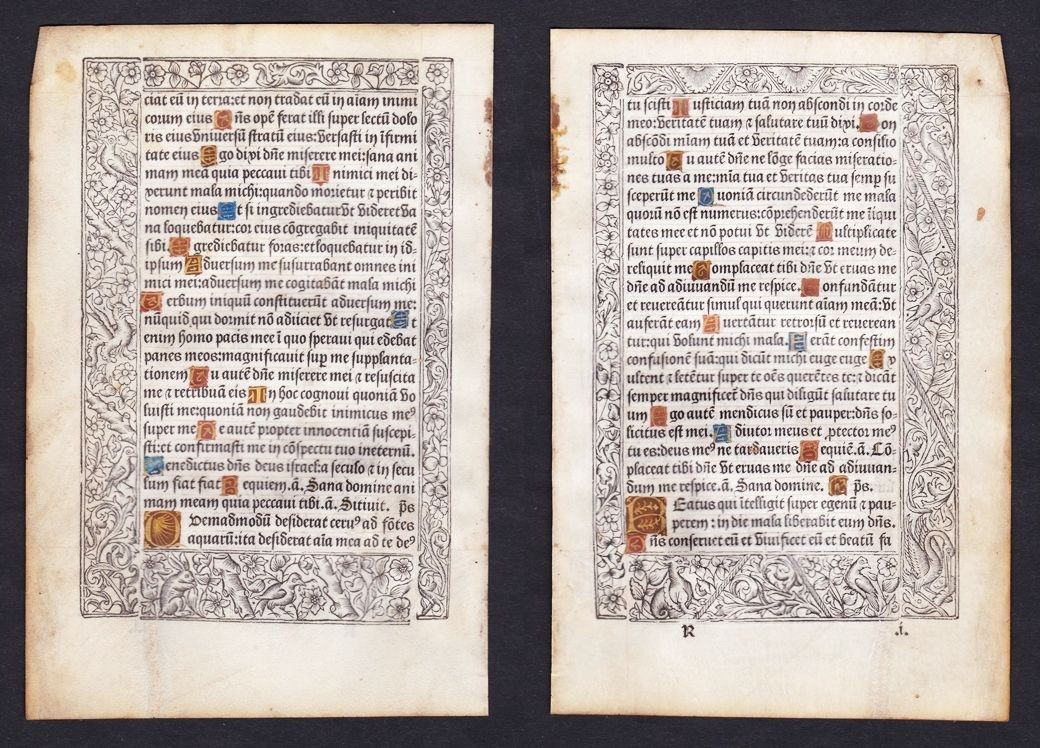 ciat eū in terra:et non tradat eū in aīam inimi
corum eius Dn̄s opē ferat illi super lectū dolo
ris eius vniuersū stratū eius:versasti in īfirmi
tate eius Ego dixi dn̄e miserere mei:sana ani
mam meā quia peccaui tibi Inimici mei di-
xerunt mala michi:quando morietur ⁊ peribit
nomen eius Et si ingrediebatur vt videret va
na loquebatur:cor eius cōgregabit iniquitatē
sibi Egrediebatur foras:et loquebatur in id-
ipsum Aduersum me susurrabant omnes ini
mici mei:aduersum me cogitabāt mala michi
Verbum iniquū constituerūt aduersum me:
nūquid qui dormit nō adiiciet vt resurgat Et
enim homo pacis mee ī quo speraui qui edebat
panes meos:magnificauit sup me supplanta-
tionem Tu autē dn̄e miserere mei ⁊ resuscita
me ⁊ retribuā eis In hoc cognoui quoniā vo
luisti me:quoniā non gaudebit inimicus meꝰ
super me Me autē propter innocentiā suscepi-
sti:et confirmasti me in cōspectu tuo ineternū.
Benedictus dn̄s deus israel a seculo ⁊ in secu
lum fiat fiat Requiem.ā. Sana domine ani
mam meam quia peccaui tibi.ā. Sitiuit. p̄s
Quemadmodū desiderat ceruꝰ ad fōtes
aquarū:ita desiderat aīa mea ad te deꝰ
tu scisti Iusticiam tuā non abscondi in corde
meo:veritatē tuam ⁊ salutare tuū dixi. Non
abscōdi mīam tuā et veritatē tuam:a consilio
multo Tu autē dn̄e ne lōge facias miseratio-
nes tuas a me:mīa tua et veritas tua semp su
sceperūt me Quoniā circundederūt me mala
quorū nō est numerus:cōprehenderūt me īiqui
tates mee et nō potui vt viderē Multiplicate
sunt super capillos capitis mei:⁊ cor meum de-
reliquit me Complaceat tibi dn̄e vt eruas me
dn̄e ad adiuuandū me respice. Confundātur
et reuereātur simul qui querunt aīam meā:vt
auferāt eam Auertātur retrorsū et reuerean
tur:qui volunt michi mala. Ferāt confestim
confusionē suā:qui dicūt michi euge euge Ex
ultent ⁊ letētur super te oēs querētes te:⁊ dicāt
semper magnificet dn̄s qui diligūt salutare tu
um Ego autē mendicus sū et pauper:dn̄s so-
licitus est mei. Adiutor meus et ꝓtector meꝰ
tu es:deus meꝰ ne tardaueris Requiē.ā. Cō-
placeat tibi dn̄e vt eruas me dn̄e ad adiuuan-
dum me respice.ā. Sana domine. p̄s.
Beatus qui ītelligit super egenū ⁊ pau-
perem: in die mala liberabit eum dn̄s.
Dn̄s conseruet eū et viuificet eū et beatū fa
R .i.